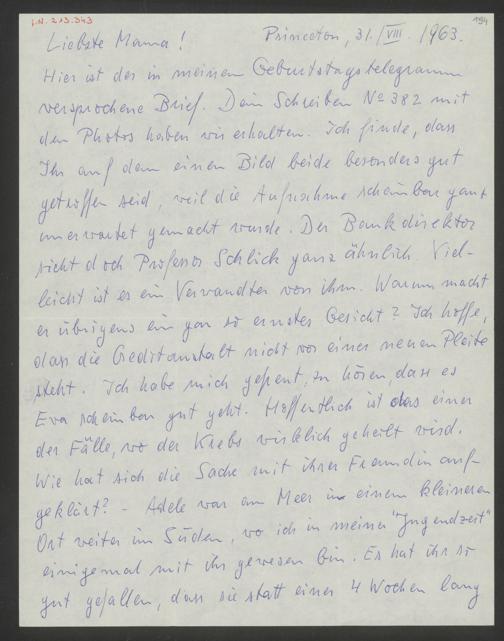 I.N. 213.343
194
Princeton, 31./VIII. 1963.
Liebste Mama!
Hier ist der in meinem Geburtstagstelegramm
versprochene Brief. Dein Schreiben Nº 382 mit
den Photos haben wir erhalten. Ich finde, dass
Ihr auf dem einen Bild beide besonders gut
getroffen seid, weil die Aufnahme scheinbar ganz
unerwartet gemacht wurde. Der Bankdirektor
sieht doch Professor Schlick ganz ähnlich. Viel-
leicht ist es ein Verwandter von ihm. Warum macht
er übrigens ein gar so ernstes Gesicht? Ich hoffe,
dass die Creditanstalt nicht vor einer neuen Pleite
steht. Ich habe mich gefreut, zu hören, dass es
Eva scheinbar gut geht. Hoffentlich ist das einer
der Fälle, wo der Krebs wirklich geheilt wird.
Wie hat sich die Sache mit ihrer Freundin auf-
geklärt? - Adele war am Meer in einem kleineren
Ort weiter im Süden, wo ich in meiner "Jugendzeit"
einigemal mit ihr gewesen bin. Es hat ihr so
gut gefallen, dass sie statt einer 4 Wochen lang